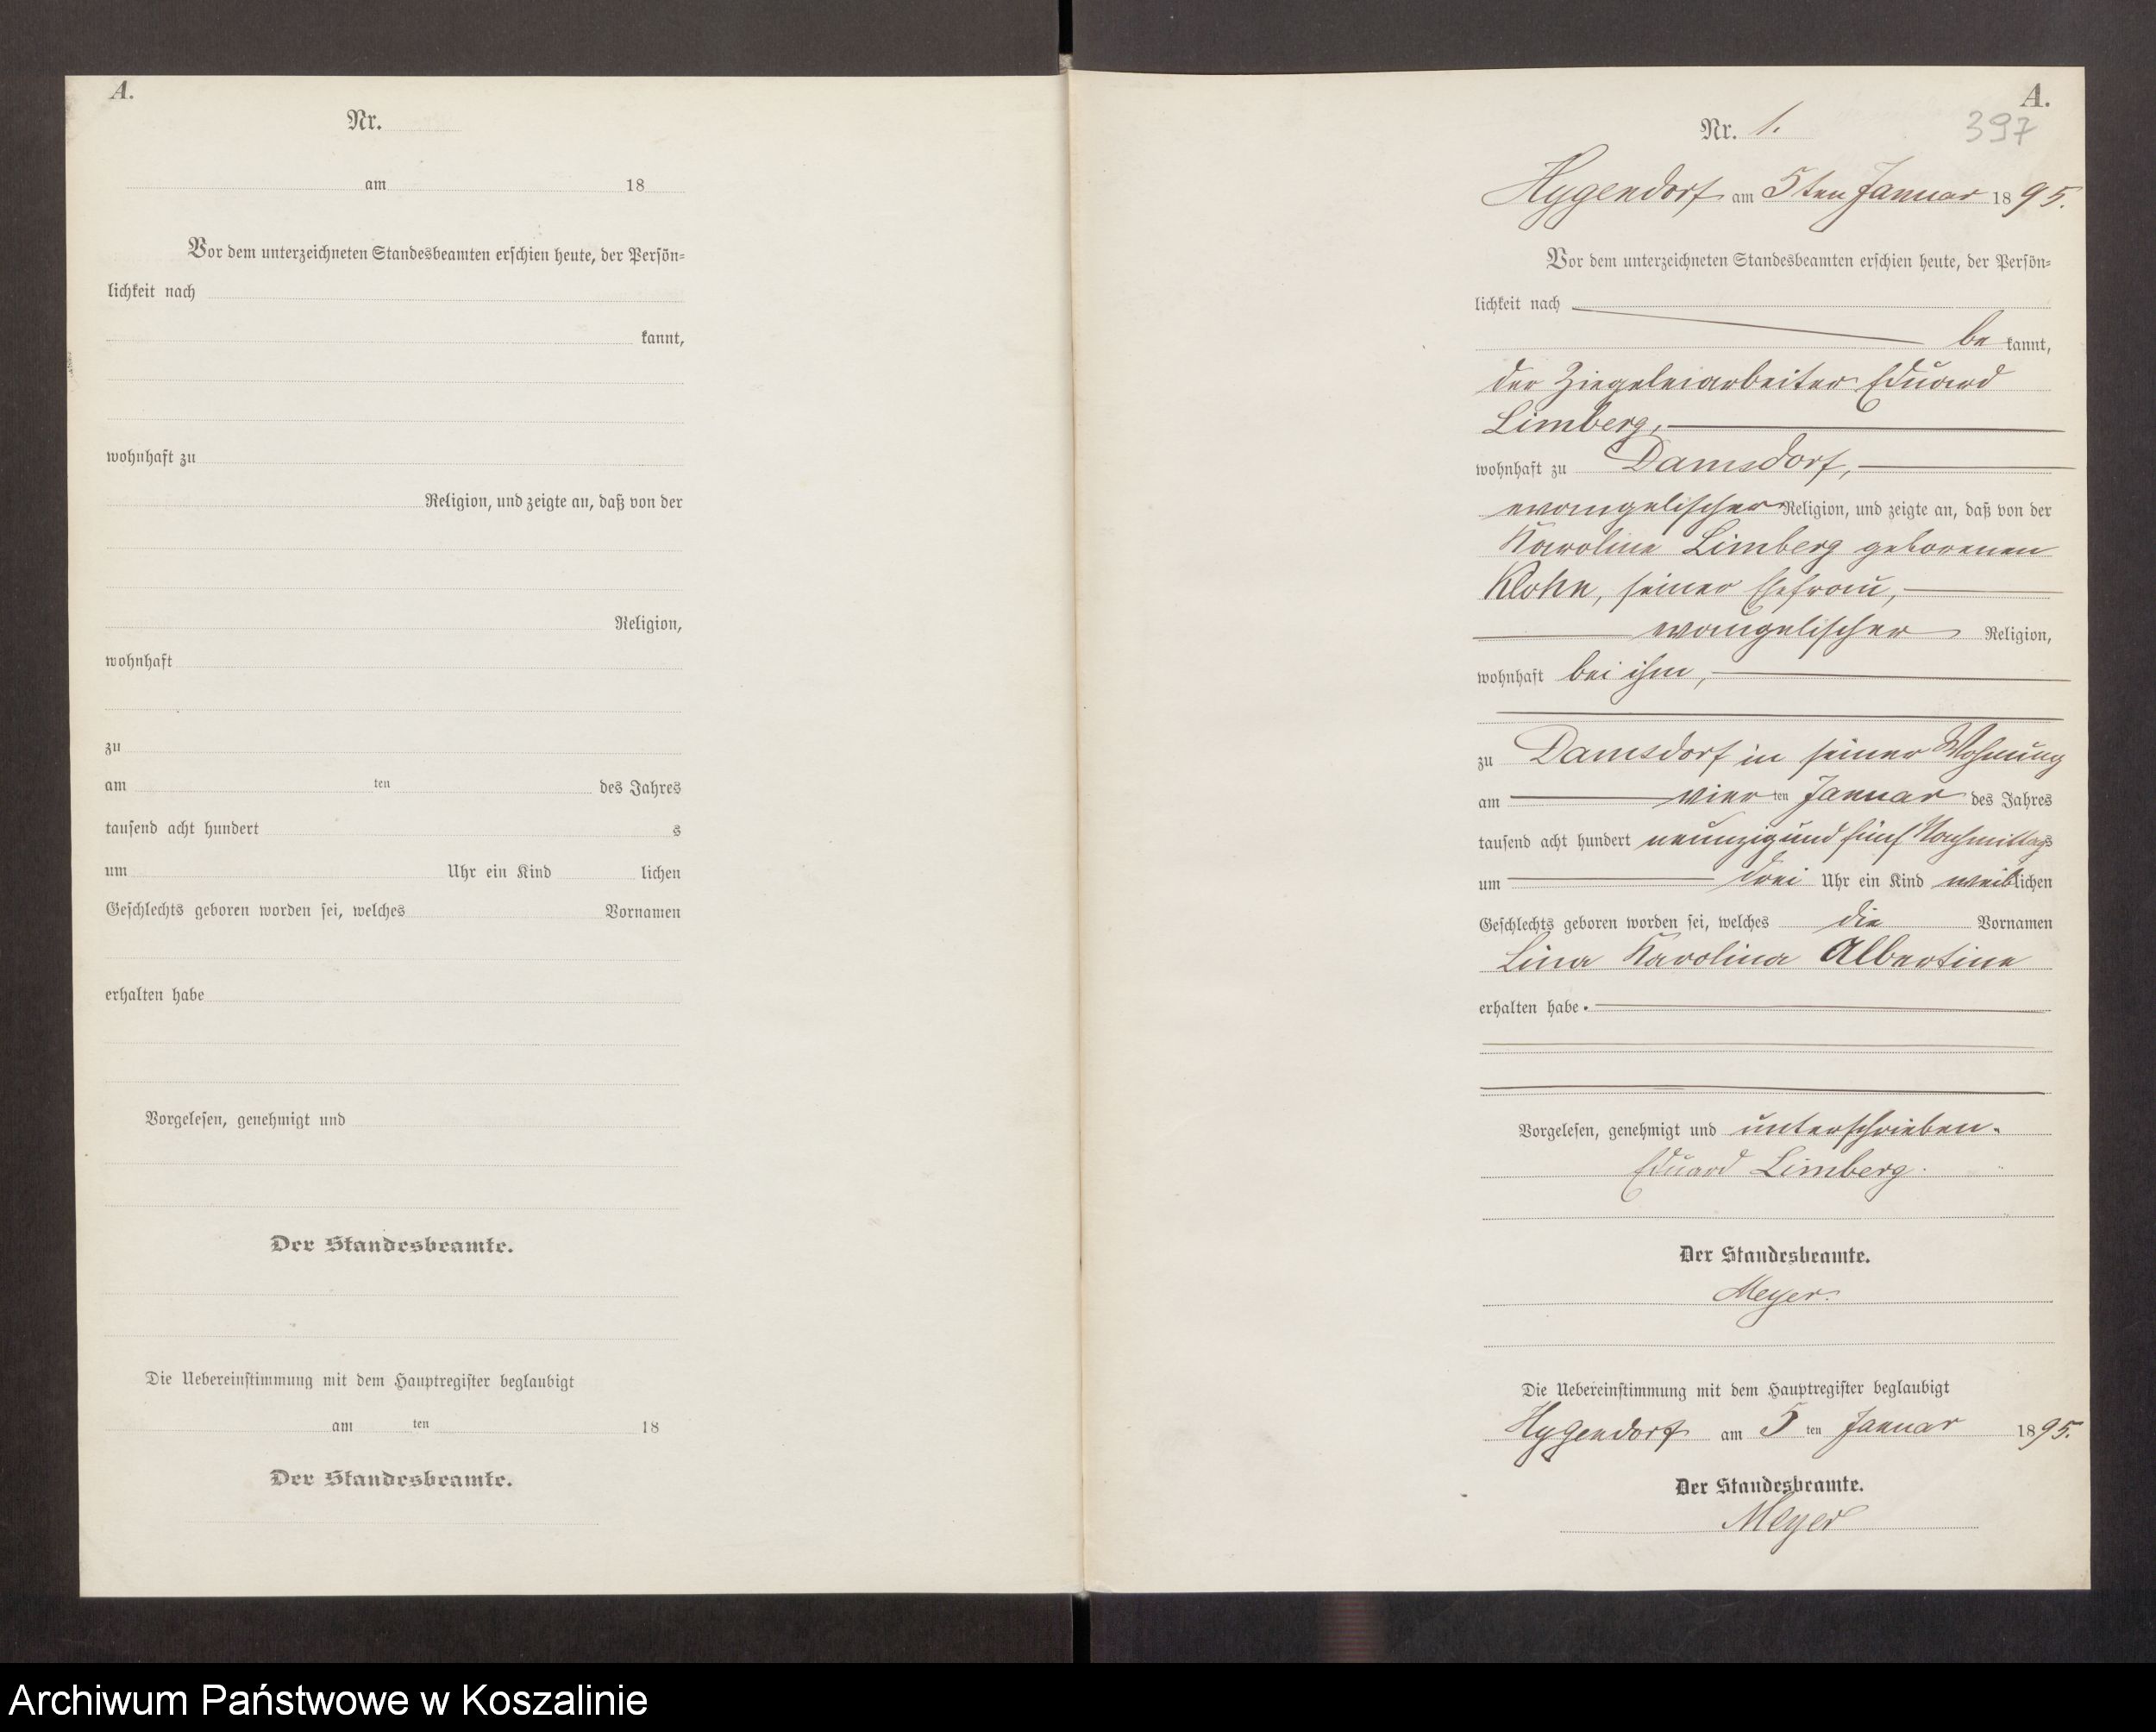 A.
Nr.
am 18
Vor dem unterzeichneten Standesbeamten erschien heute, der Persön-
lichkeit nach
kannt,
wohnhaft zu
Religion, und zeigte an, daß von der
Religion,
wohnhaft
zu
am ten des Jahres
tausend acht hundert s
um Uhr ein Kind lichen
Geschlechts geboren worden sei, welches Vornamen
erhalten habe
Vorgelesen, genehmigt und
Der Standesbeamte.
Die Uebereinstimmung mit dem Hauptregister beglaubigt
am ten 18
Der Standesbeamte.
A.
397
Nr. 1.
Hygendorf am 5ten Januar 1895.
Vor dem unterzeichneten Standesbeamten erschien heute, der Persön-
lichkeit nach
be kannt,
der Ziegeleiarbeiter Eduard
Limberg,
wohnhaft zu Damsdorf,
evangelischer Religion, und zeigte an, daß von der
Karoline Limberg geborenen
Klohn, seiner Ehefrau,
evangelischer Religion,
wohnhaft bei ihm,
zu Damsdorf in seiner Wohnung
am vier ten Januar des Jahres
tausend acht hundert neunzig und fünf Nachmittags
um drei Uhr ein Kind weiblichen
Geschlechts geboren worden sei, welches die Vornamen
Lina Karolina Albertine
erhalten habe.
Vorgelesen, genehmigt und unterschrieben.
Eduard Limberg.
Der Standesbeamte.
Meyer.
Die Uebereinstimmung mit dem Hauptregister beglaubigt
Hygendorf am 5 ten Januar 1895.
Der Standesbeamte.
Meyer
Archiwum Państwowe w Koszalinie